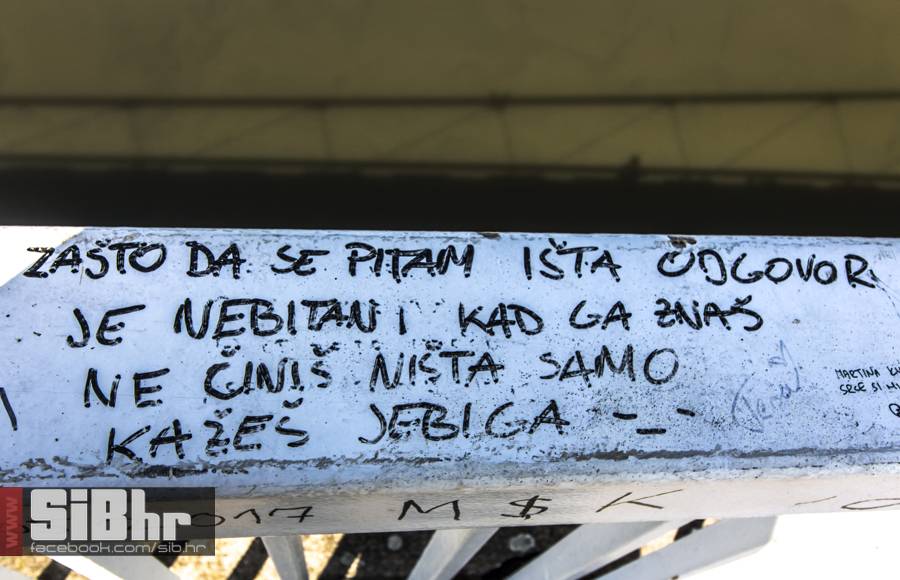 ZAŠTO DA SE PITAM IŠTA ODGOVOR
JE NEBITAN I KAD GA ZNAŠ
NE ČINIŠ NIŠTA SAMO
KAŽEŠ JEBIGA -_-
MARTINA
SRCE SI
2017 M$K
www
SiBhr
facebook.com/sib.hr